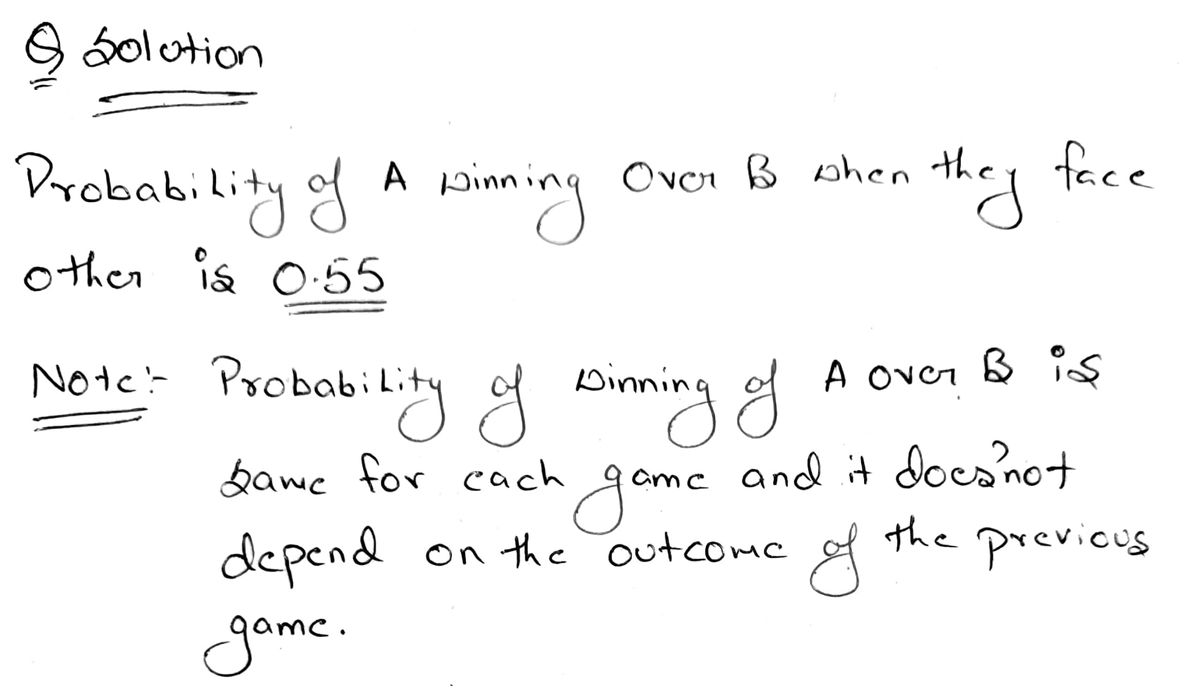 Q Solution
Probability of A winning Over B when they face
other is 0.55
Note:- Probability of winning of A over B is
same for each game and it does'not
depend on the outcome of the previous
game.